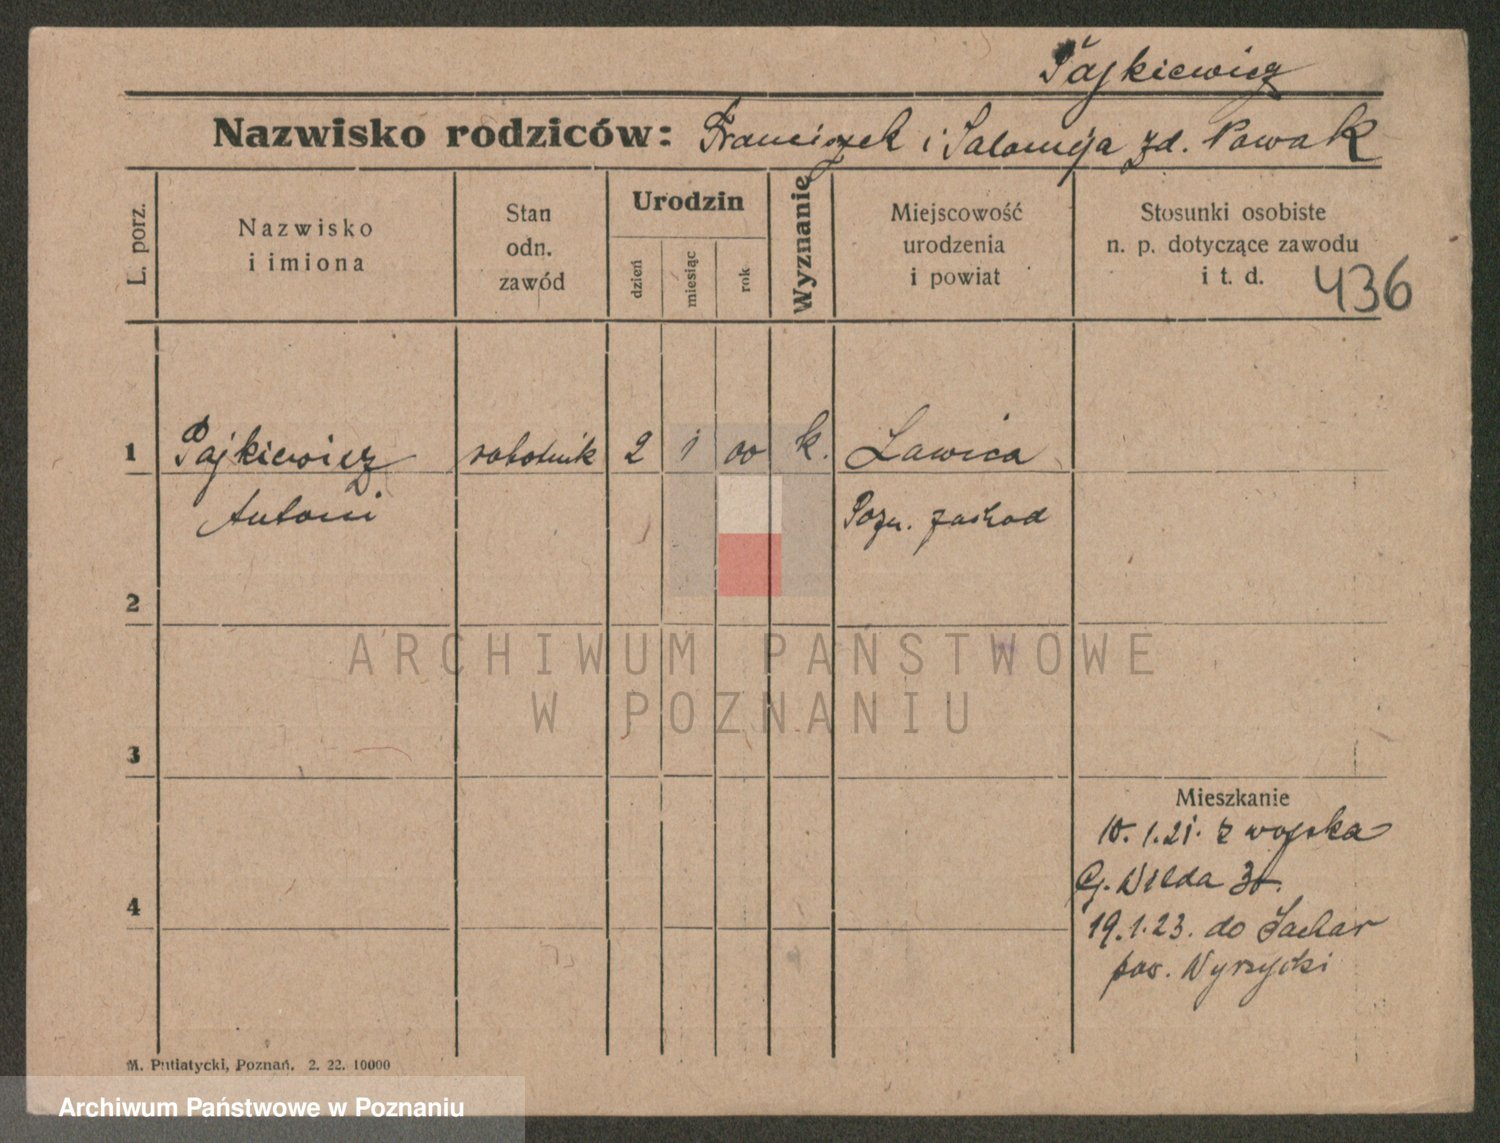 Pajkiewicz
Nazwisko rodziców: Franciszek i Salomeja zd. Nowak
L. porz.
Nazwisko
i imiona
Stan
odn.
zawód
Urodzin
dzień
miesiąc
rok
Wyznanie
Miejscowość
urodzenia
i powiat
Stosunki osobiste
n. p. dotyczące zawodu
i t. d.
436
1 Pajkiewicz robotnik 2 1 00 k. Ławica
Antoni Pozn. zachod
2
ARCHIWUM PAŃSTWOWE
W POZNANIU
3
Mieszkanie
10. 1. 21. z wojska
G. Wilda 30.
4
19. 1. 23. do
pow. Wyrzycki
M. Putiatycki, Poznań. 2. 22. 10000
Archiwum Państwowe w Poznaniu